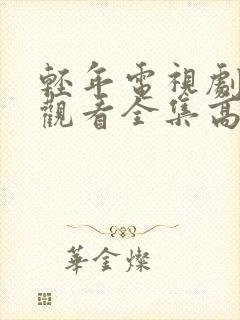 輕年電視劇
觀看全集高
華金燦